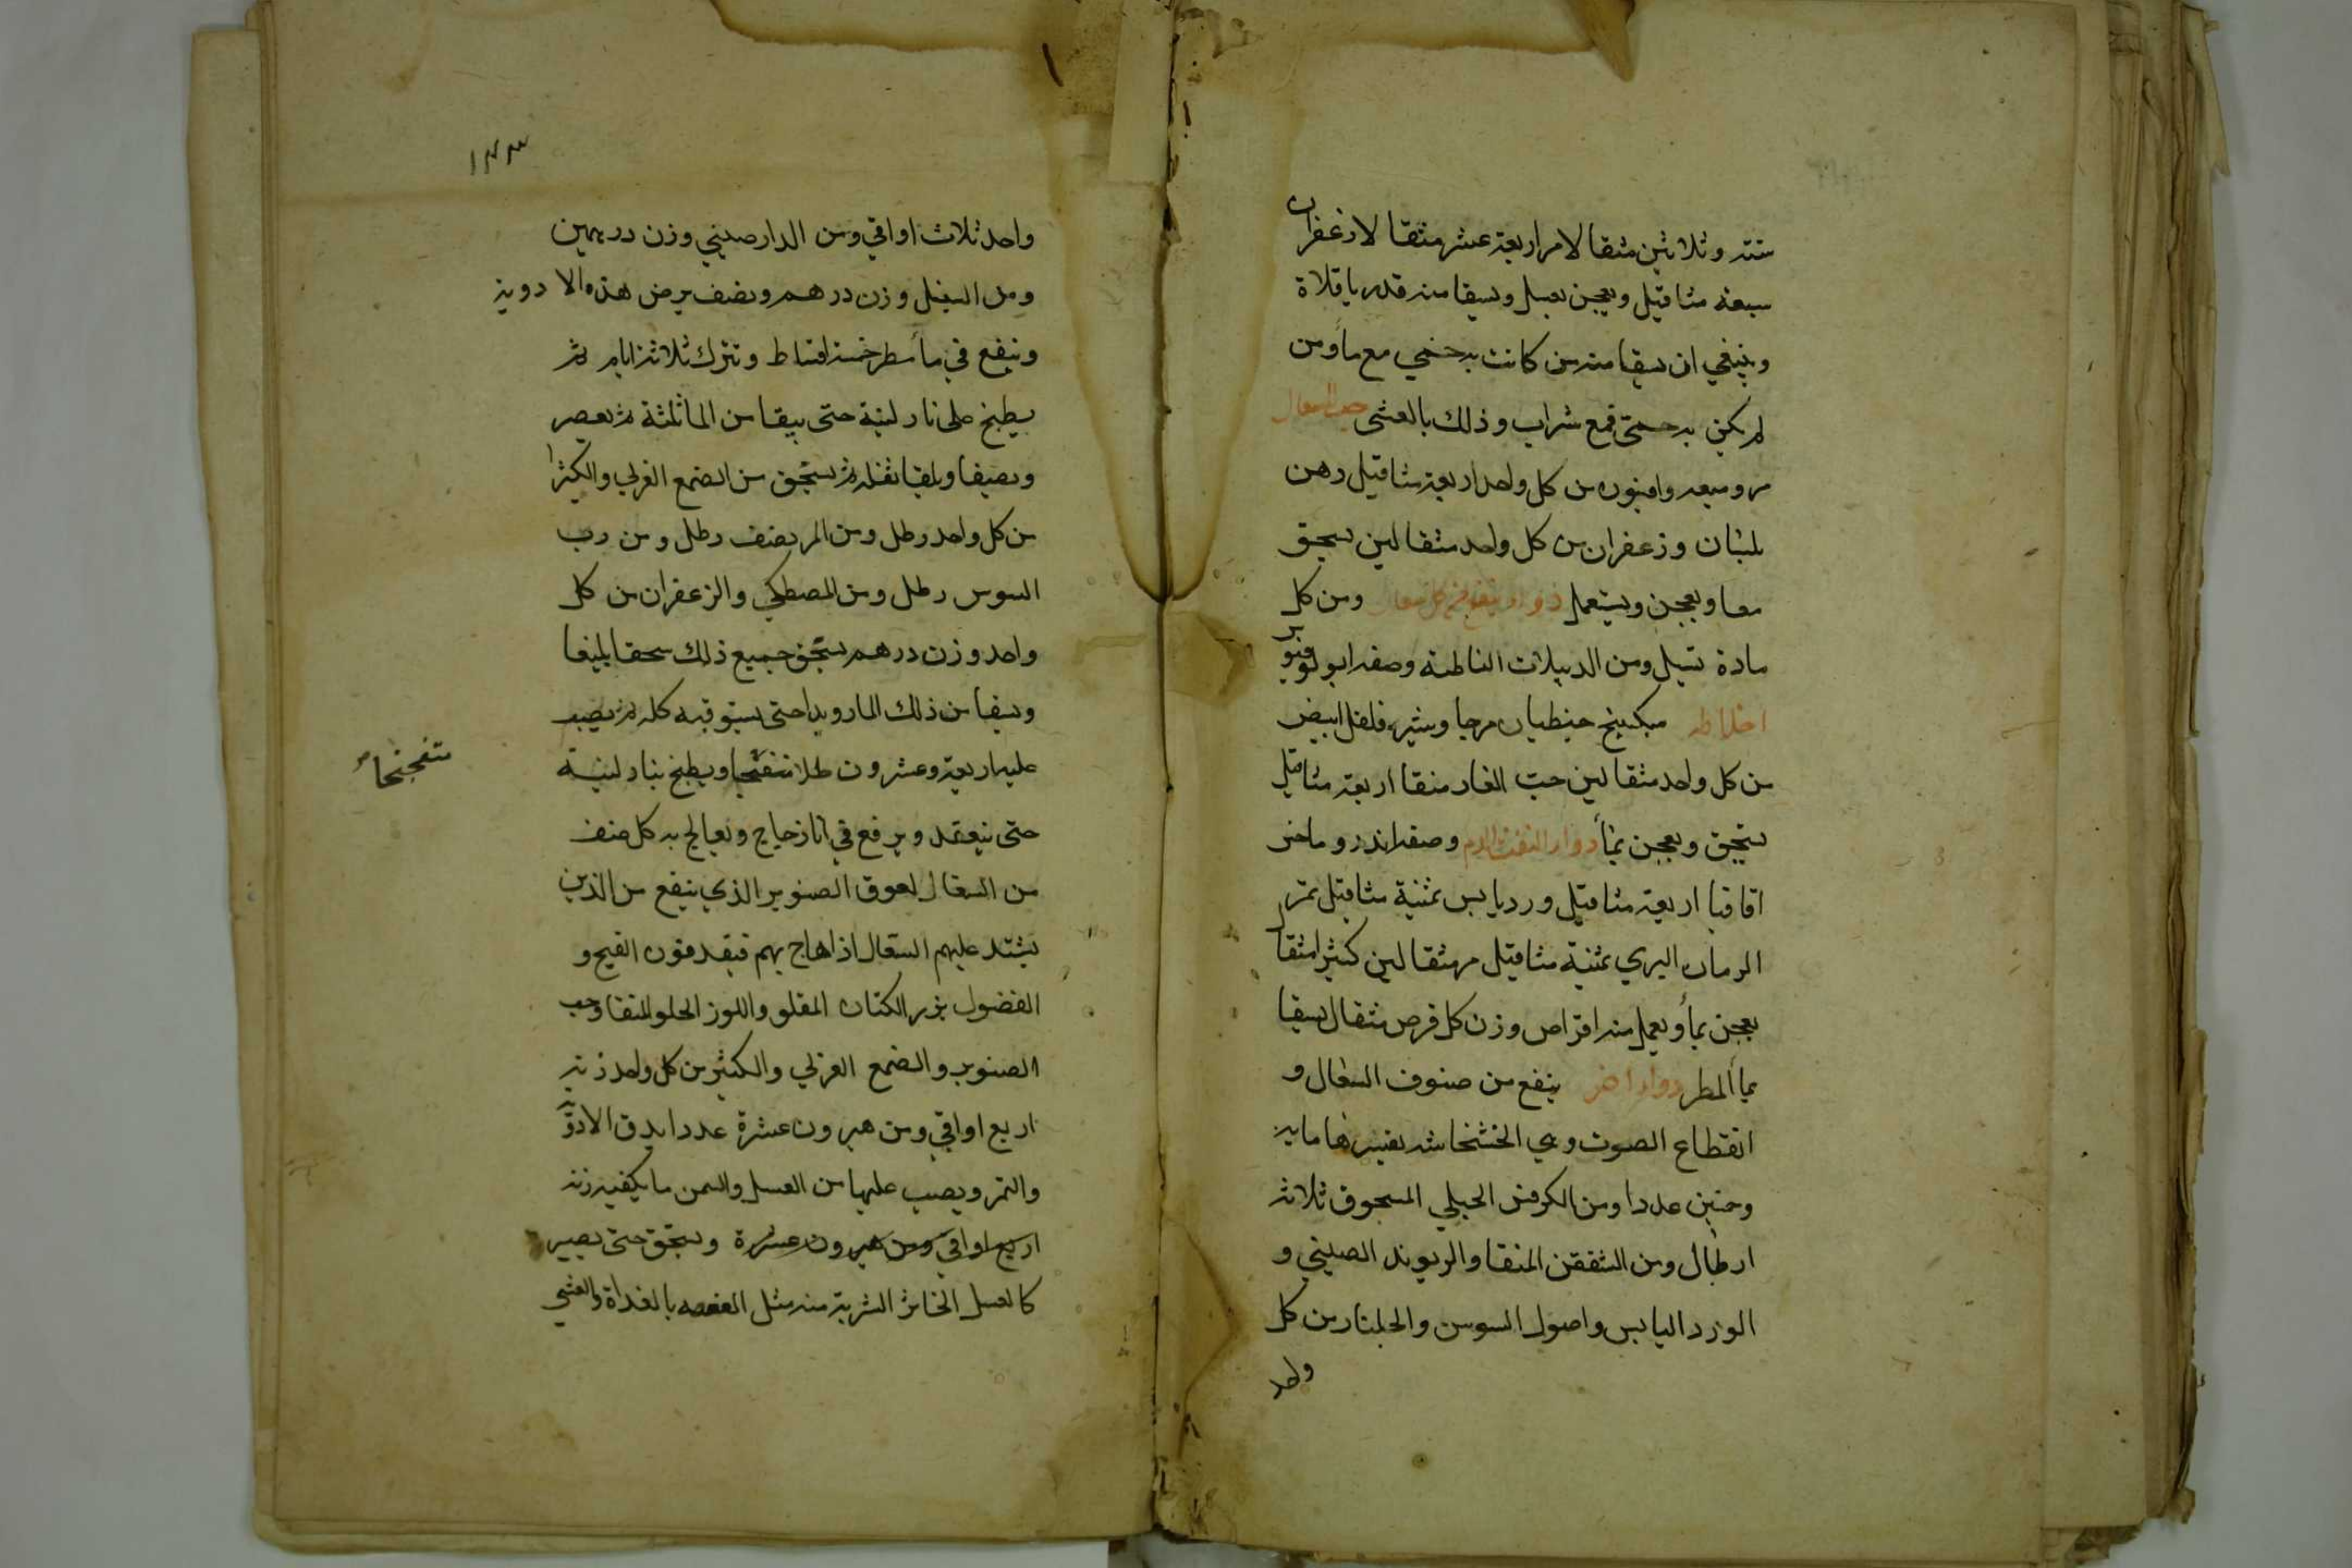 ستة وثلاثين مثقالا مر اربعة عشر مثقالا زعفران
سبعة مثاقيل ويعجن بعسل ويسقا منه قدر باقلاة
وينبغي ان يسقا منه من كانت به حمي مع مأ ومن
لم يكن به حمي فمع شراب وذلك بالعشي حب السعال
مر وميعه وافيون من كل واحد اربعة مثاقيل دهن
بلسان وزعفران من كل واحد مثقالين يسحق
معا ويعجن ويستعمل دواء ينفع من كل سعال ومن كل
مادة تسيل ومن الدبيلات الباطنة وصفه ابولونيوس
اخلاطه سكبينج جنطيان مر جاوشير فلفل ابيض
من كل واحد مثقالين حب الغار منقا اربعة مثاقيل
يسحق ويعجن بمأ دواء لنفث الدم وصفه اندروماخس
اقاقيا اربعة مثاقيل ورد يابس ثمنية مثاقيل ثمر
الرمان البري ثمنية مثاقيل مر مثقالين كثيرا مثقال
يعجن بمأ ويعمل منه اقراص وزن كل قرص مثقال يسقا
بمأ المطر دواء اخر ينفع من صنوف السعال و
انقطاع الصوت وهي الخشخاشه تفسيرها مايه
وخمسين عددا ومن الكرفس الجبلي المسحوق ثلاثة
ارطال ومن المنقا والريوند الصيني و
الورد اليابس واصول السوسن والجلنار من كل
واحد
١٣٣
واحد ثلاث اواقي ومن الدارصيني وزن درهمين
ومن وزن درهم ونصف يرض هذه الادوية
وينقع في مأ مطر خمسة اقساط وتترك ثلاثة ايام ثم
يطبخ على نار لينة حتى يبقا من المأ ثلثة ثم يعصر
ويصفيا ويلقيا ثفله ثم يسحق من الصمغ العربي والكثيرا
من كل واحد رطل ومن المر نصف رطل ومن رب
السوس رطل ومن المصطكي والزعفران من كل
واحد وزن درهم يسحق جميع ذلك سحقا بليغا
ويسقا من ذلك الما رويدا حتى يستوفيه كله ثم يصب
عليه اربعة وعشرون طلا متفختجا ويطبخ بنار لينة
متفختجا
حتى ينعقد ويرفع في انا زجاج ويعالج به كل صنف
من السعال لعوق الصنوبر الذي ينفع من الذين
يشتد عليهم السعال اذا هاج بهم فيقدفون القيح و
الفضول بزر الكتان المقلو واللوز الحلو المنقا وحب
الصنوبر والصمغ العربي والكثير من كل واحد زنة
اربع اواقي ومن هيرون عشرة عددا يدق الادوية
والتمر ويصب عليها من العسل والسمن ما يكفيه زنة
اربع اواقي ومن هيرون عشرة ويسحق حتى يصير
كالعسل الخاثر الشربة منه مثل العفصه بالغداة والعشي